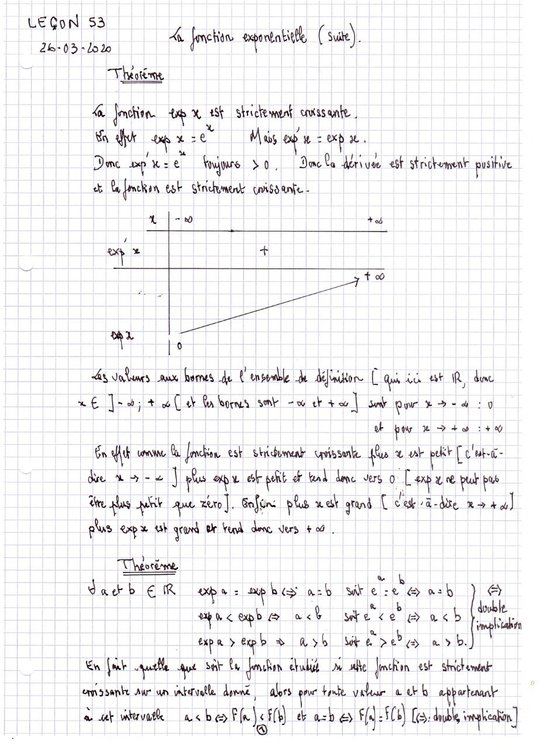 LEÇON 53
26-03-2020
La fonction exponentielle (suite).
Théorème
La fonction exp x est strictement croissante.
En effet exp x = e^x Mais exp'x = exp x.
Donc exp'x = e^x toujours > 0. Donc la dérivée est strictement positive
et la fonction est strictement croissante.
x -∞ +∞
exp' x +
+∞
exp x
0
Les valeurs aux bornes de l'ensemble de définition [ qui ici est IR, donc
x ∈ ]-∞; +∞[ et les bornes sont -∞ et +∞] sont pour x → -∞ : 0
et pour x → +∞ : +∞
En effet comme la fonction est strictement croissante plus x est petit [c'est-à-
dire x → -∞] plus exp x est petit et tend donc vers 0 [exp x ne peut pas
être plus petit que zéro]. Enfin plus x est grand [c'est-à-dire x → +∞]
plus exp x est grand et tend donc vers +∞.
Théorème
∀ a et b ∈ IR exp a = exp b ⇔ a = b soit e^a = e^b ⇔ a = b
exp a < exp b ⇔ a < b soit e^a < e^b ⇔ a < b
exp a > exp b ⇒ a > b soit e^a > e^b ⇔ a > b.
⇔
double
implication
En fait quelle que soit la fonction étudiée si cette fonction est strictement
croissante sur un intervalle donné, alors pour toute valeur a et b appartenant
à cet intervalle a < b ⇔ F(a) < F(b) et a = b ⇔ F(a) = F(b) [⇔: double implication]
1